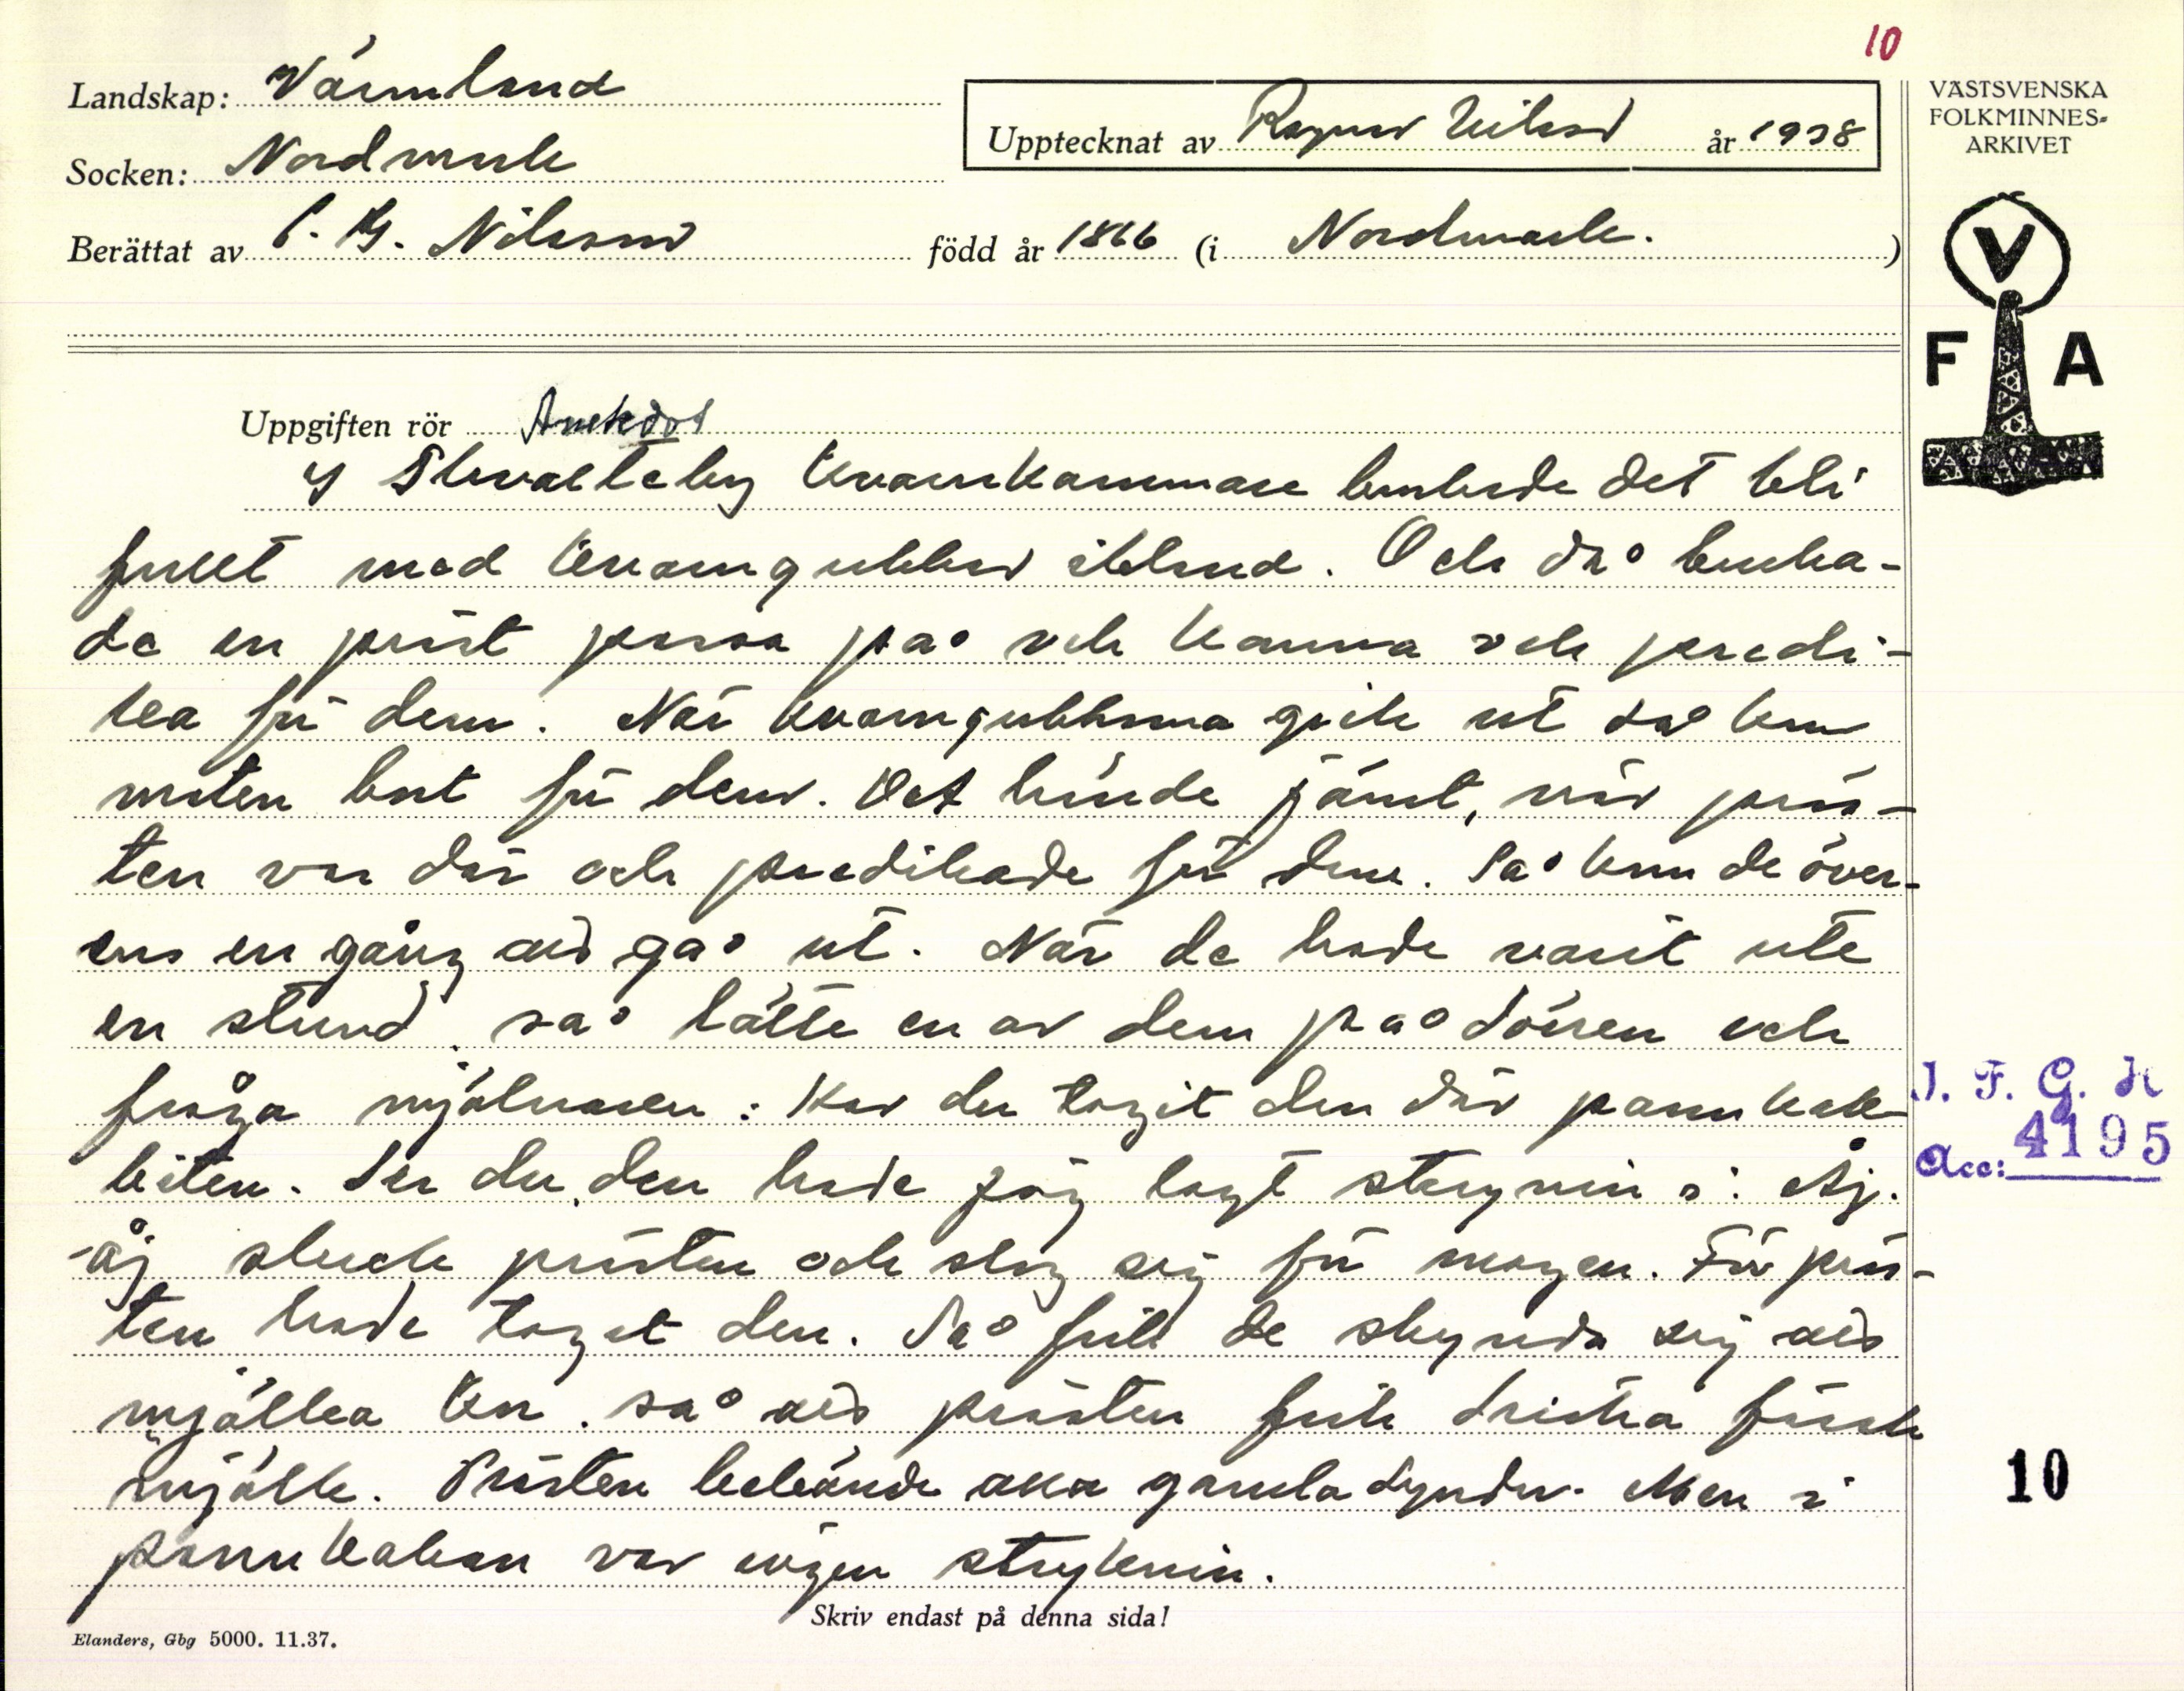 10
Landskap: Värmland
VÄSTSVENSKA
FOLKMINNES-
ARKIVET
Upptecknat av Ragnar Nilsson år 1938
Socken: Nordmark
Berättat av P. G. Nilsson född år 1866 (i Nordmark.)
V
F A
Uppgiften rör Anekdot
I kvarnkammare brukade det bli
fullt med kvarngubbar ibland. Och då bruka-
de en präst passa på och komma och predi-
ka för dem. När kvarngubbarna gick ut så kom
maten bort för dem. Det hände jämt, när präs-
ten var där och predikade för dem. Så kom de över-
ens en gång att gå ut. När de hade varit ute
en stund, så lätte en av dem på dörren och
fråga mjölnaren: Har du tagit den där pannkak-
biten. Ser du, den hade jag lagt stryknin i. Aj.
-aj skrek prästen och slog sig för magen. För präs-
ten hade tagit den. Så fick de skynda sig att
mjölka kon, så att prästen fick dricka färsk
mjölk. Prästen bekände alla gamla synder. Men i
pannkakan var ingen stryknin.
J. F. G. H
Acc: 4195
10
Skriv endast på denna sida!
Elanders, Gbg 5000. 11.37.